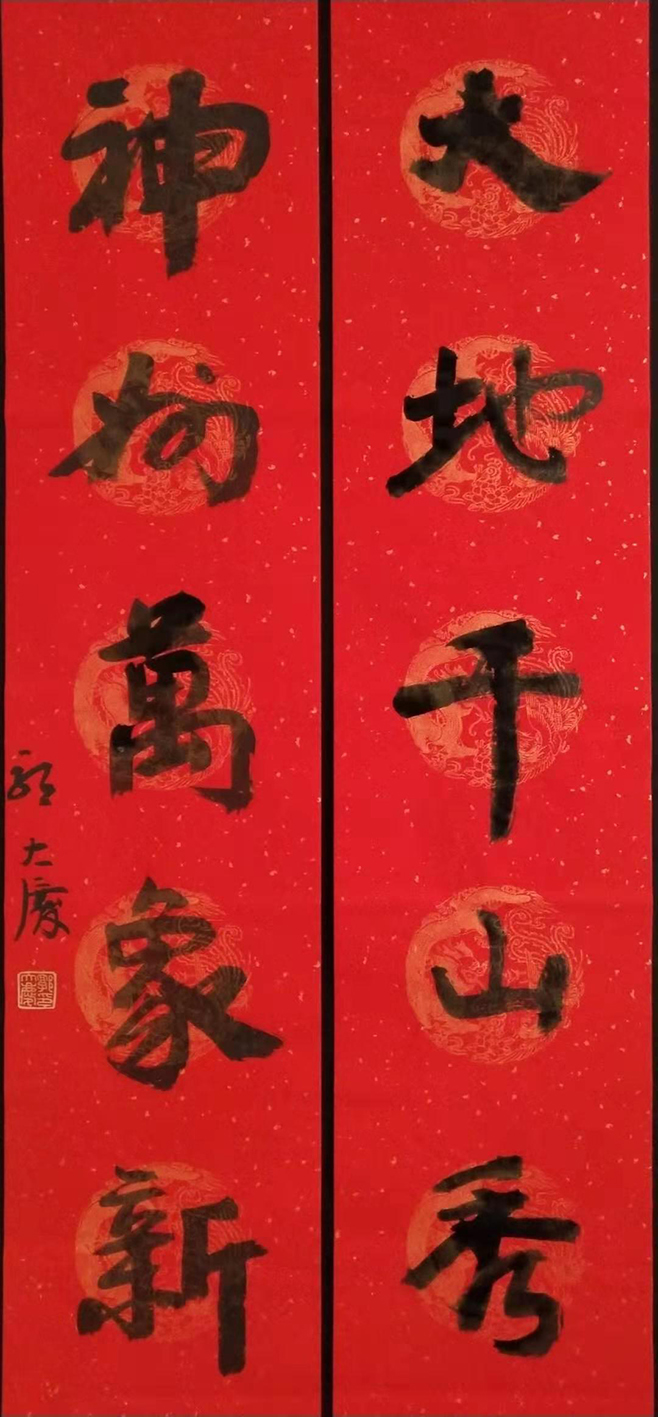 大地千山秀
神州萬象新
郭大慶